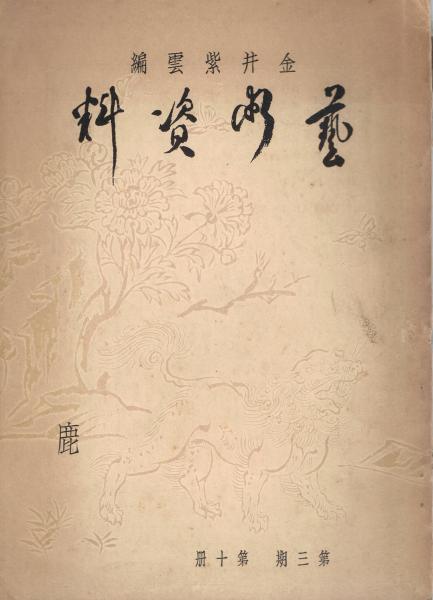 金井紫雲編
藝術資料
鹿
第三期 第十册